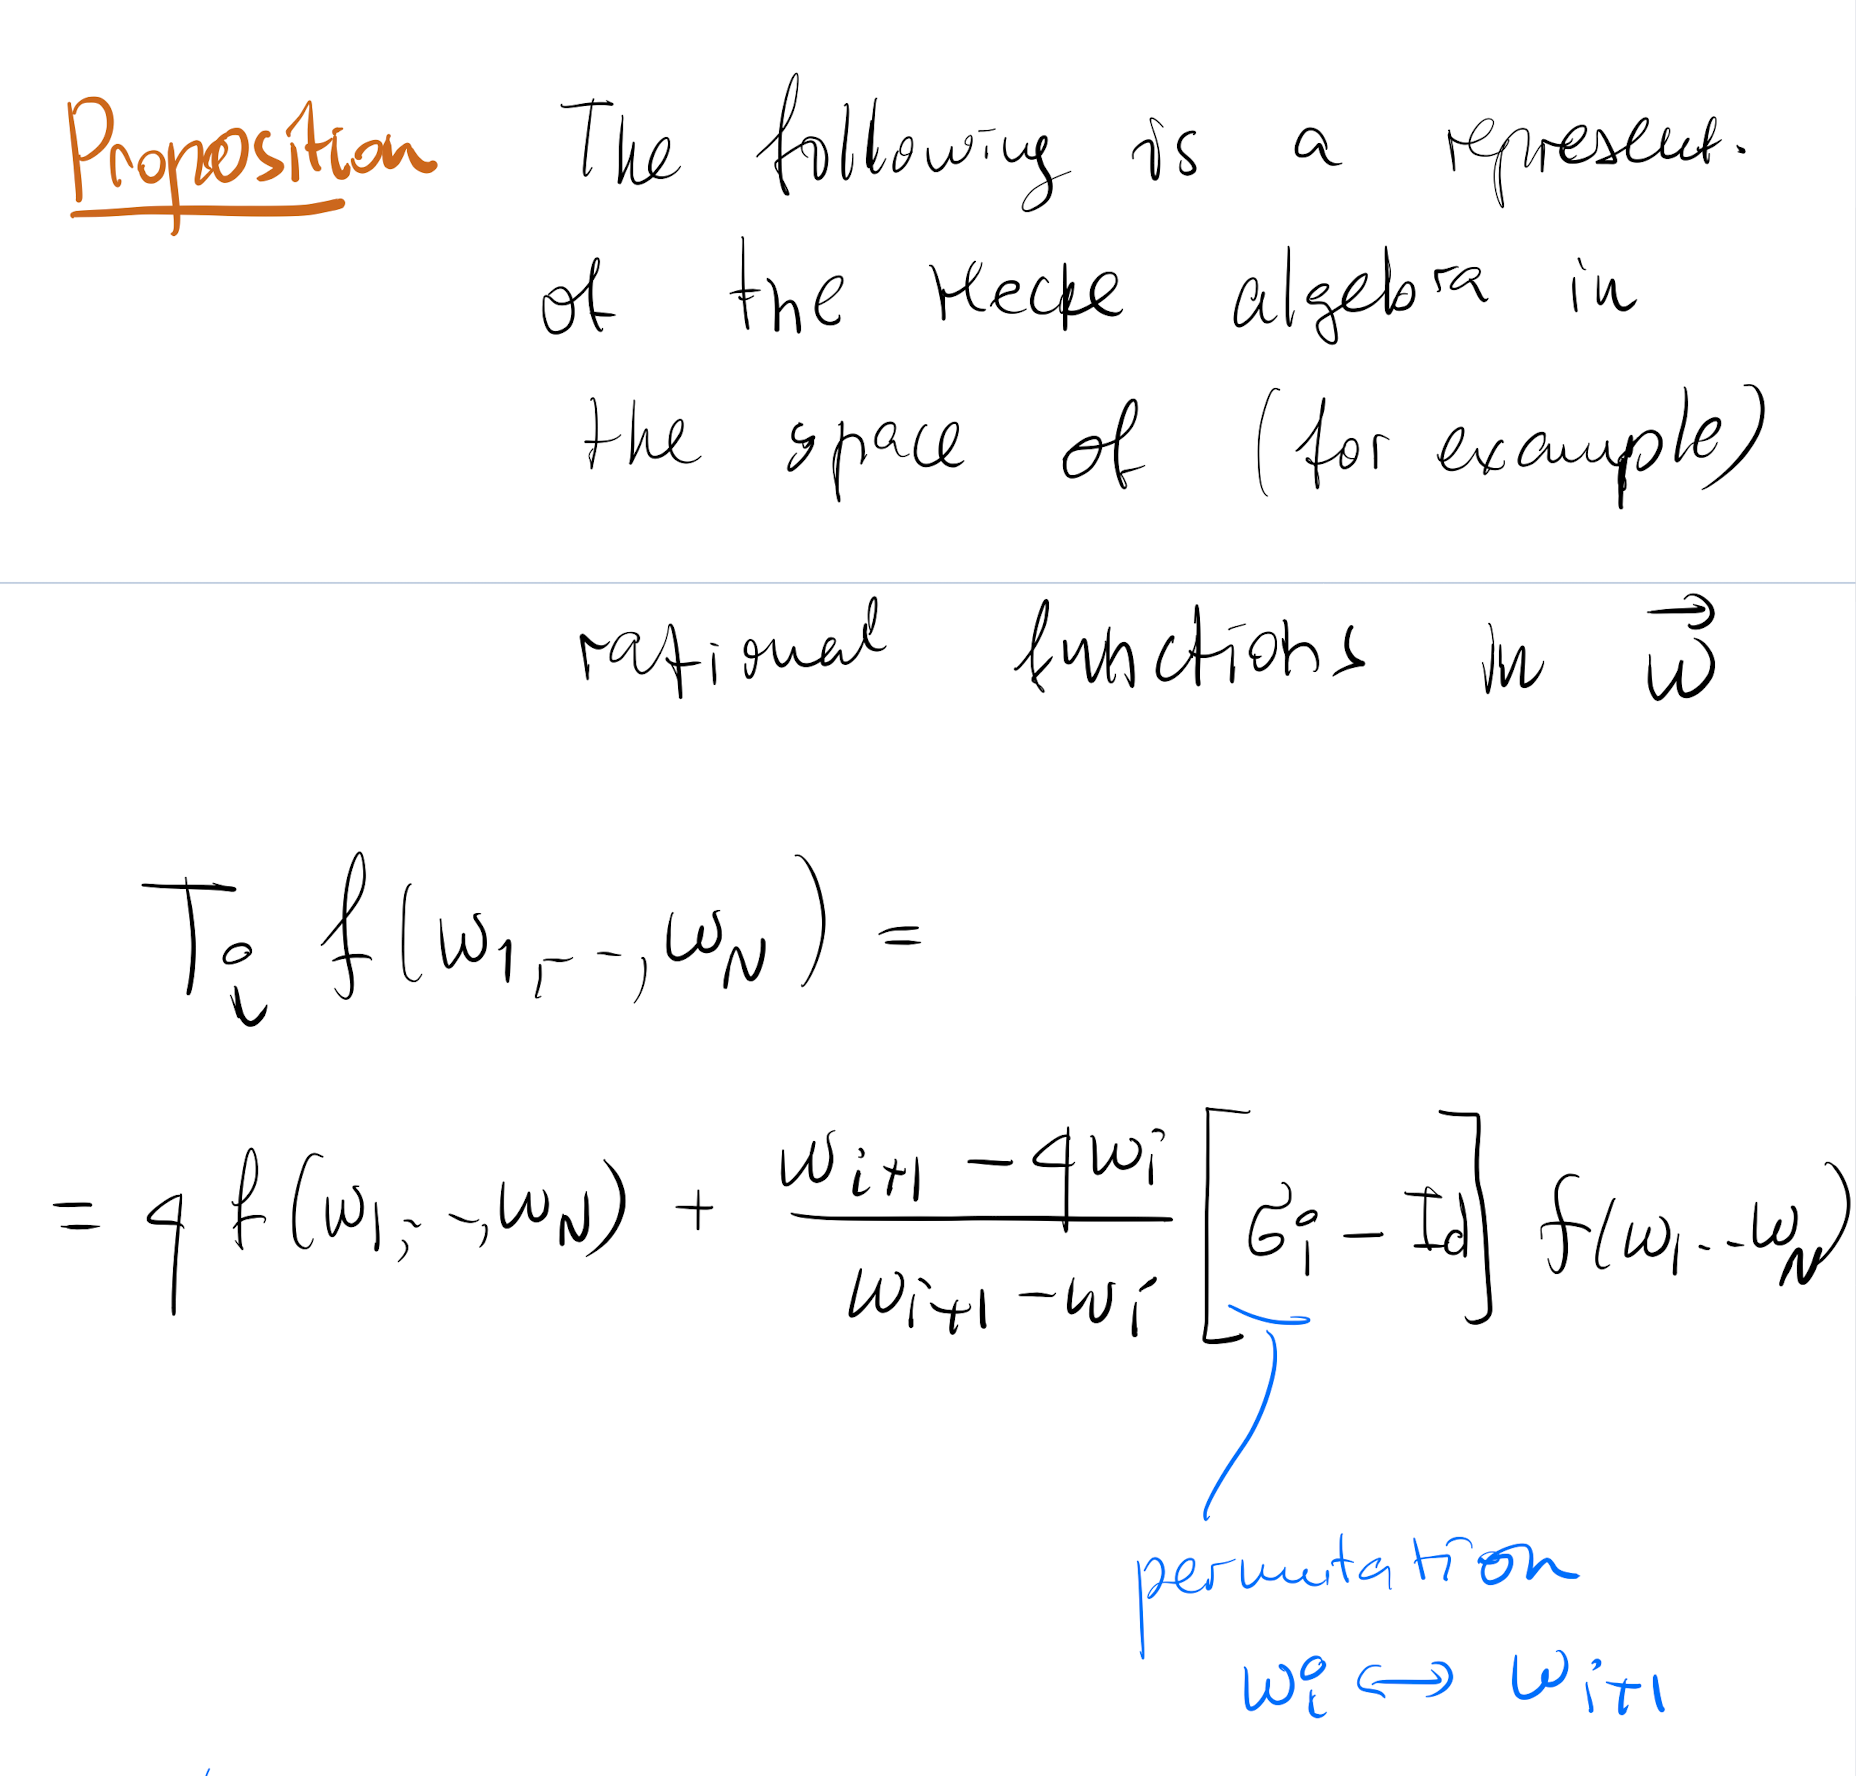 Proposition The following is a represent.
of the Hecke algebra in
the space of (for example)
rational functions in $\vec{w}$
$T_i f(w_1, \ldots, w_N) =$
$= q f(w_1, \ldots, w_N) + \frac{w_{i+1} - q w_i}{w_{i+1} - w_i} \left[ \sigma_i - Id \right] f(w_1 \ldots w_N)$
permutation
$w_i \leftrightarrow w_{i+1}$